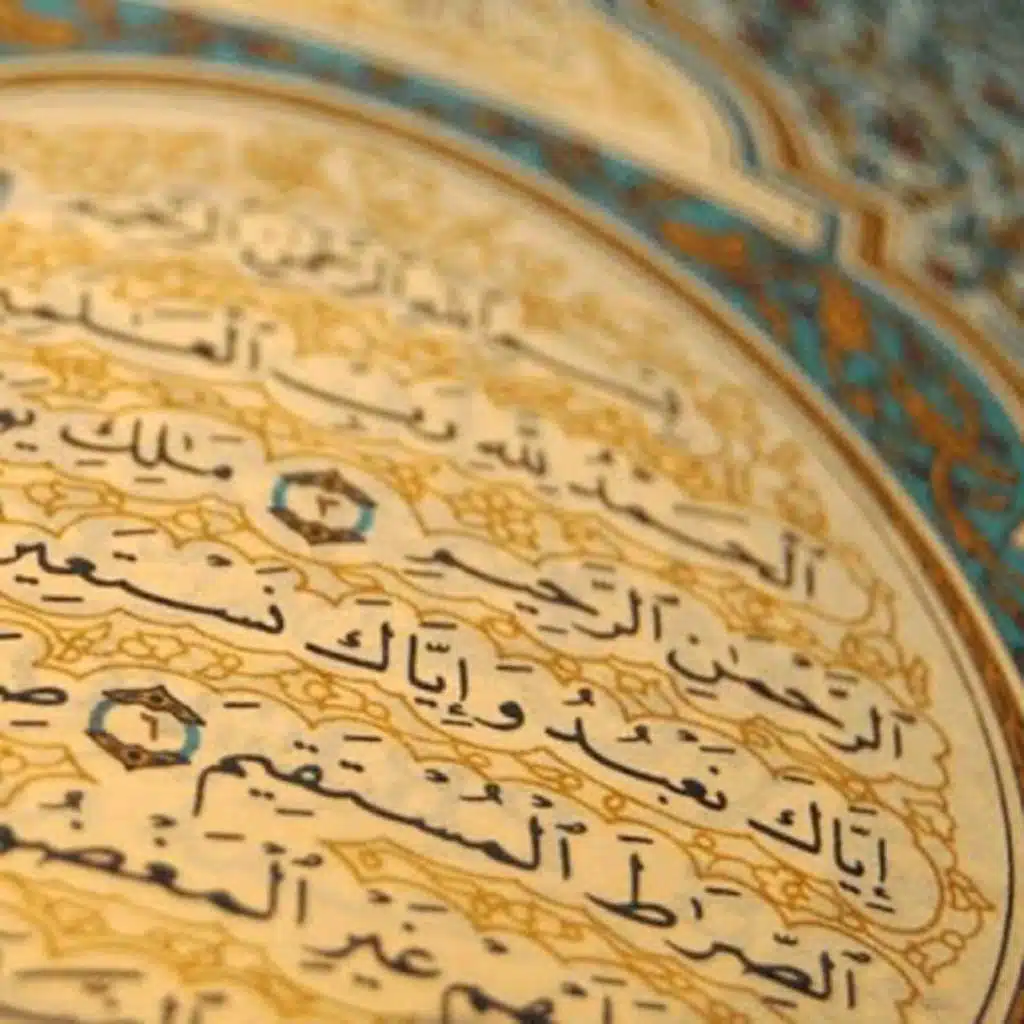 بِسْمِ ٱللَّهِ ٱلرَّحْمَٰنِ ٱلرَّحِيمِ
ٱلْحَمْدُ لِلَّهِ رَبِّ ٱلْعَٰلَمِ
ٱلرَّحْمَٰنِ ٱلرَّحِيمِ ٣ مَٰلِكِ يَو
إِيَّاكَ نَعْبُدُ وَإِيَّاكَ نَسْتَعِي
ٱلصِّرَٰطَ ٱلْمُسْتَقِيمَ ٦ صِ
هِمْ غَيْرِ ٱلْمَغْضُو